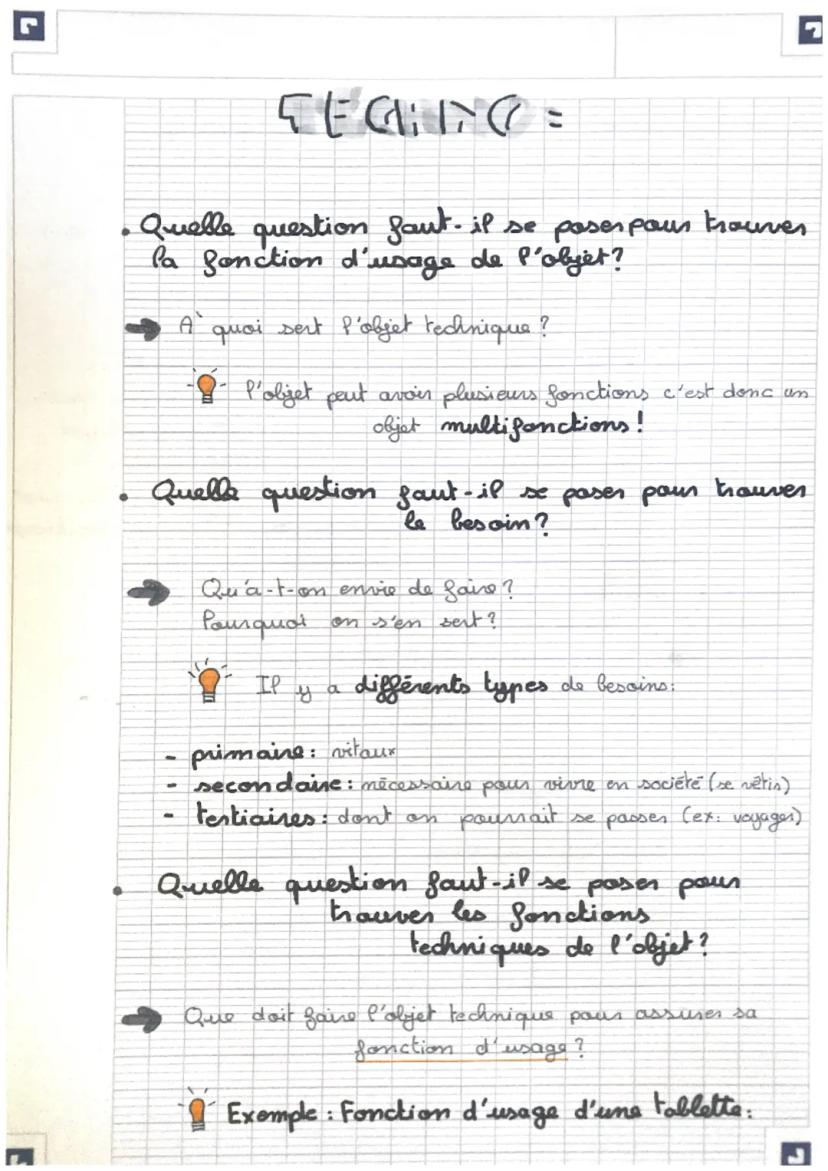 TECHNO =
. Quelle question faut-il se poser pour trouver
la fonction d'usage de l'objet?
→ A` quoi sert l'objet technique?
l'objet peut avoir plusieurs fonctions c'est donc un
objet multifonctions!
. Quelle question faut-il se poser pour trouver
le besoin?
→ Qu'a-t-on envie de faire?
Pourquoi on s'en sert?
Il y a différents types de besoins:
- primaire: vitaux
- secondaire: nécessaire pour vivre en société (se vêtir)
- tertiaires: dont on pourrait se passer (ex: voyages)
. Quelle question faut-il se poser pour
trouver les fonctions
techniques de l'objet?
→ Que doit faire l'objet technique pour assurer sa
fonction d'usage?
Exemple: Fonction d'usage d'une tablette: